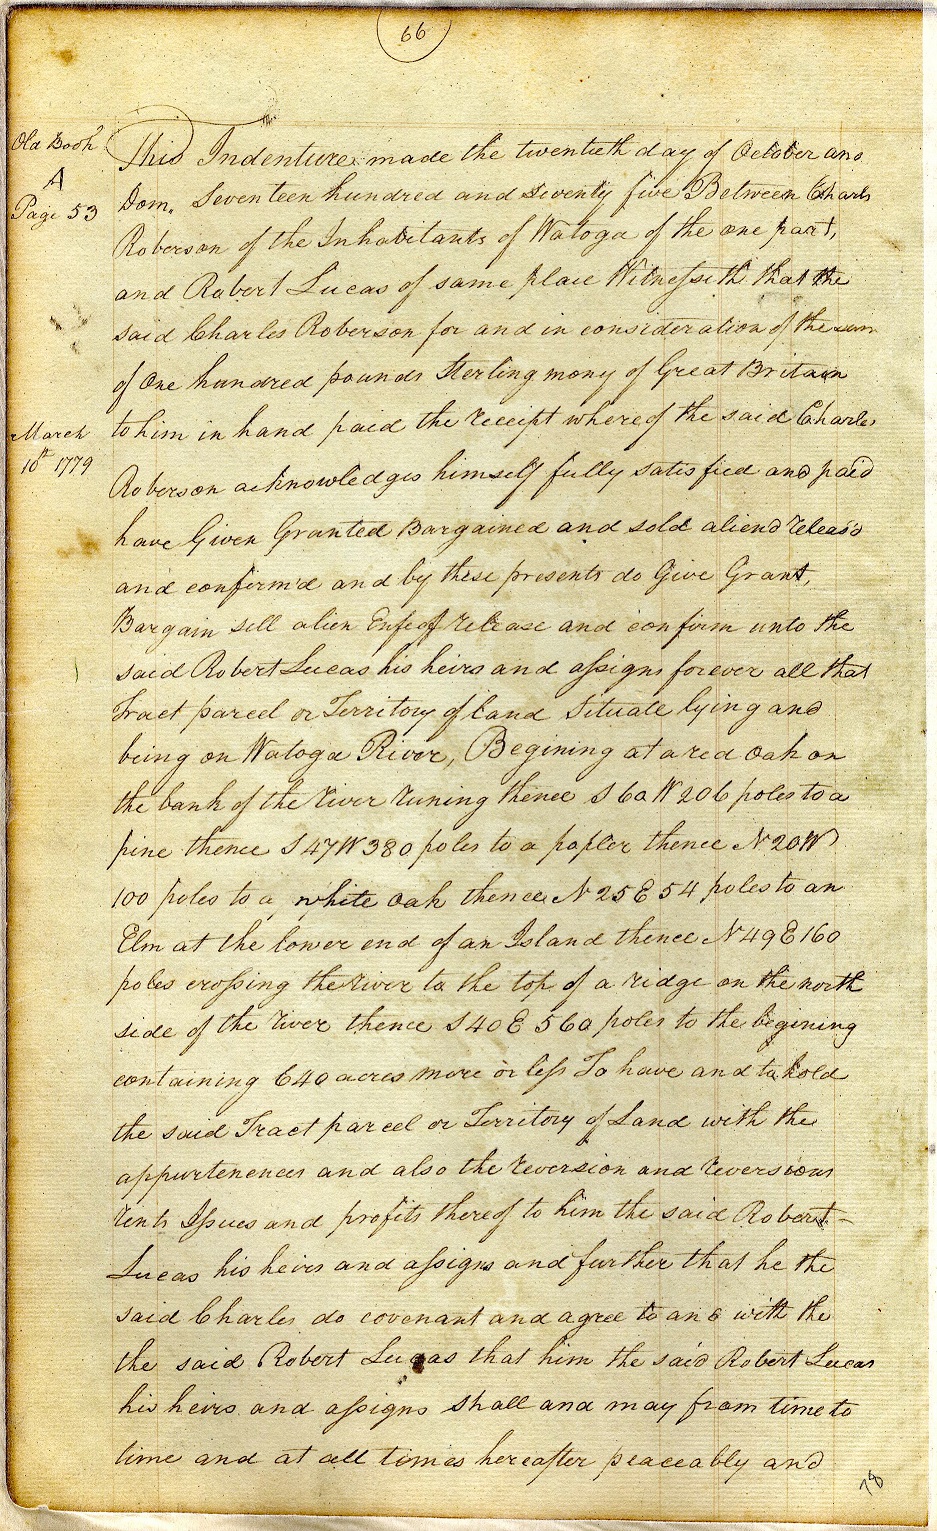 66
Old Book
A
Page 53
This Indenture made the twentieth day of October ano
Dom. Seventeen hundred and Seventy five Between Charls
Roberson of the Inhabitants of Watoga of the one part,
and Robert Lucas of same place Witnesseth that the
said Charles Roberson for and in consideration of the sum
of One hundred pounds Sterling mony of Great Britain
to him in hand paid the receipt whereof the said Charles
March
10th 1779
Roberson acknowledges himself fully satisfied and paid
have Given Granted Bargained and sold aliend releas'd
and confirm'd and by these presents do Give Grant,
Bargain sell alien Enfeof release and confirm unto the
said Robert Lucas his heirs and assigns forever all that
Tract parcel or Territory of land Situate lying and
being on Watoga River, Begining at a red oak on
the bank of the river runing thence S 60 W 206 poles to a
pine thence S 47 W 380 poles to a popler thence N 20 W
100 poles to a white oak thence N 25 E 54 poles to an
Elm at the lower end of an Island thence N 49 E 160
poles crossing the river to the top of a ridge on the north
side of the river thence S 40 E 560 poles to the begining
containing 640 acres more or less To have and to hold
the said Tract parcel or Territory of Land with the
appurtenences and also the reversion and reversions
rents Issues and profits thereof to him the said Robert
Lucas his heirs and assigns and further that he the
said Charles do covenant and agree to and with the
the said Robert Lucas that him the said Robert Lucas
his heirs and assigns shall and may from time to
time and at all times hereafter peaceably and
78